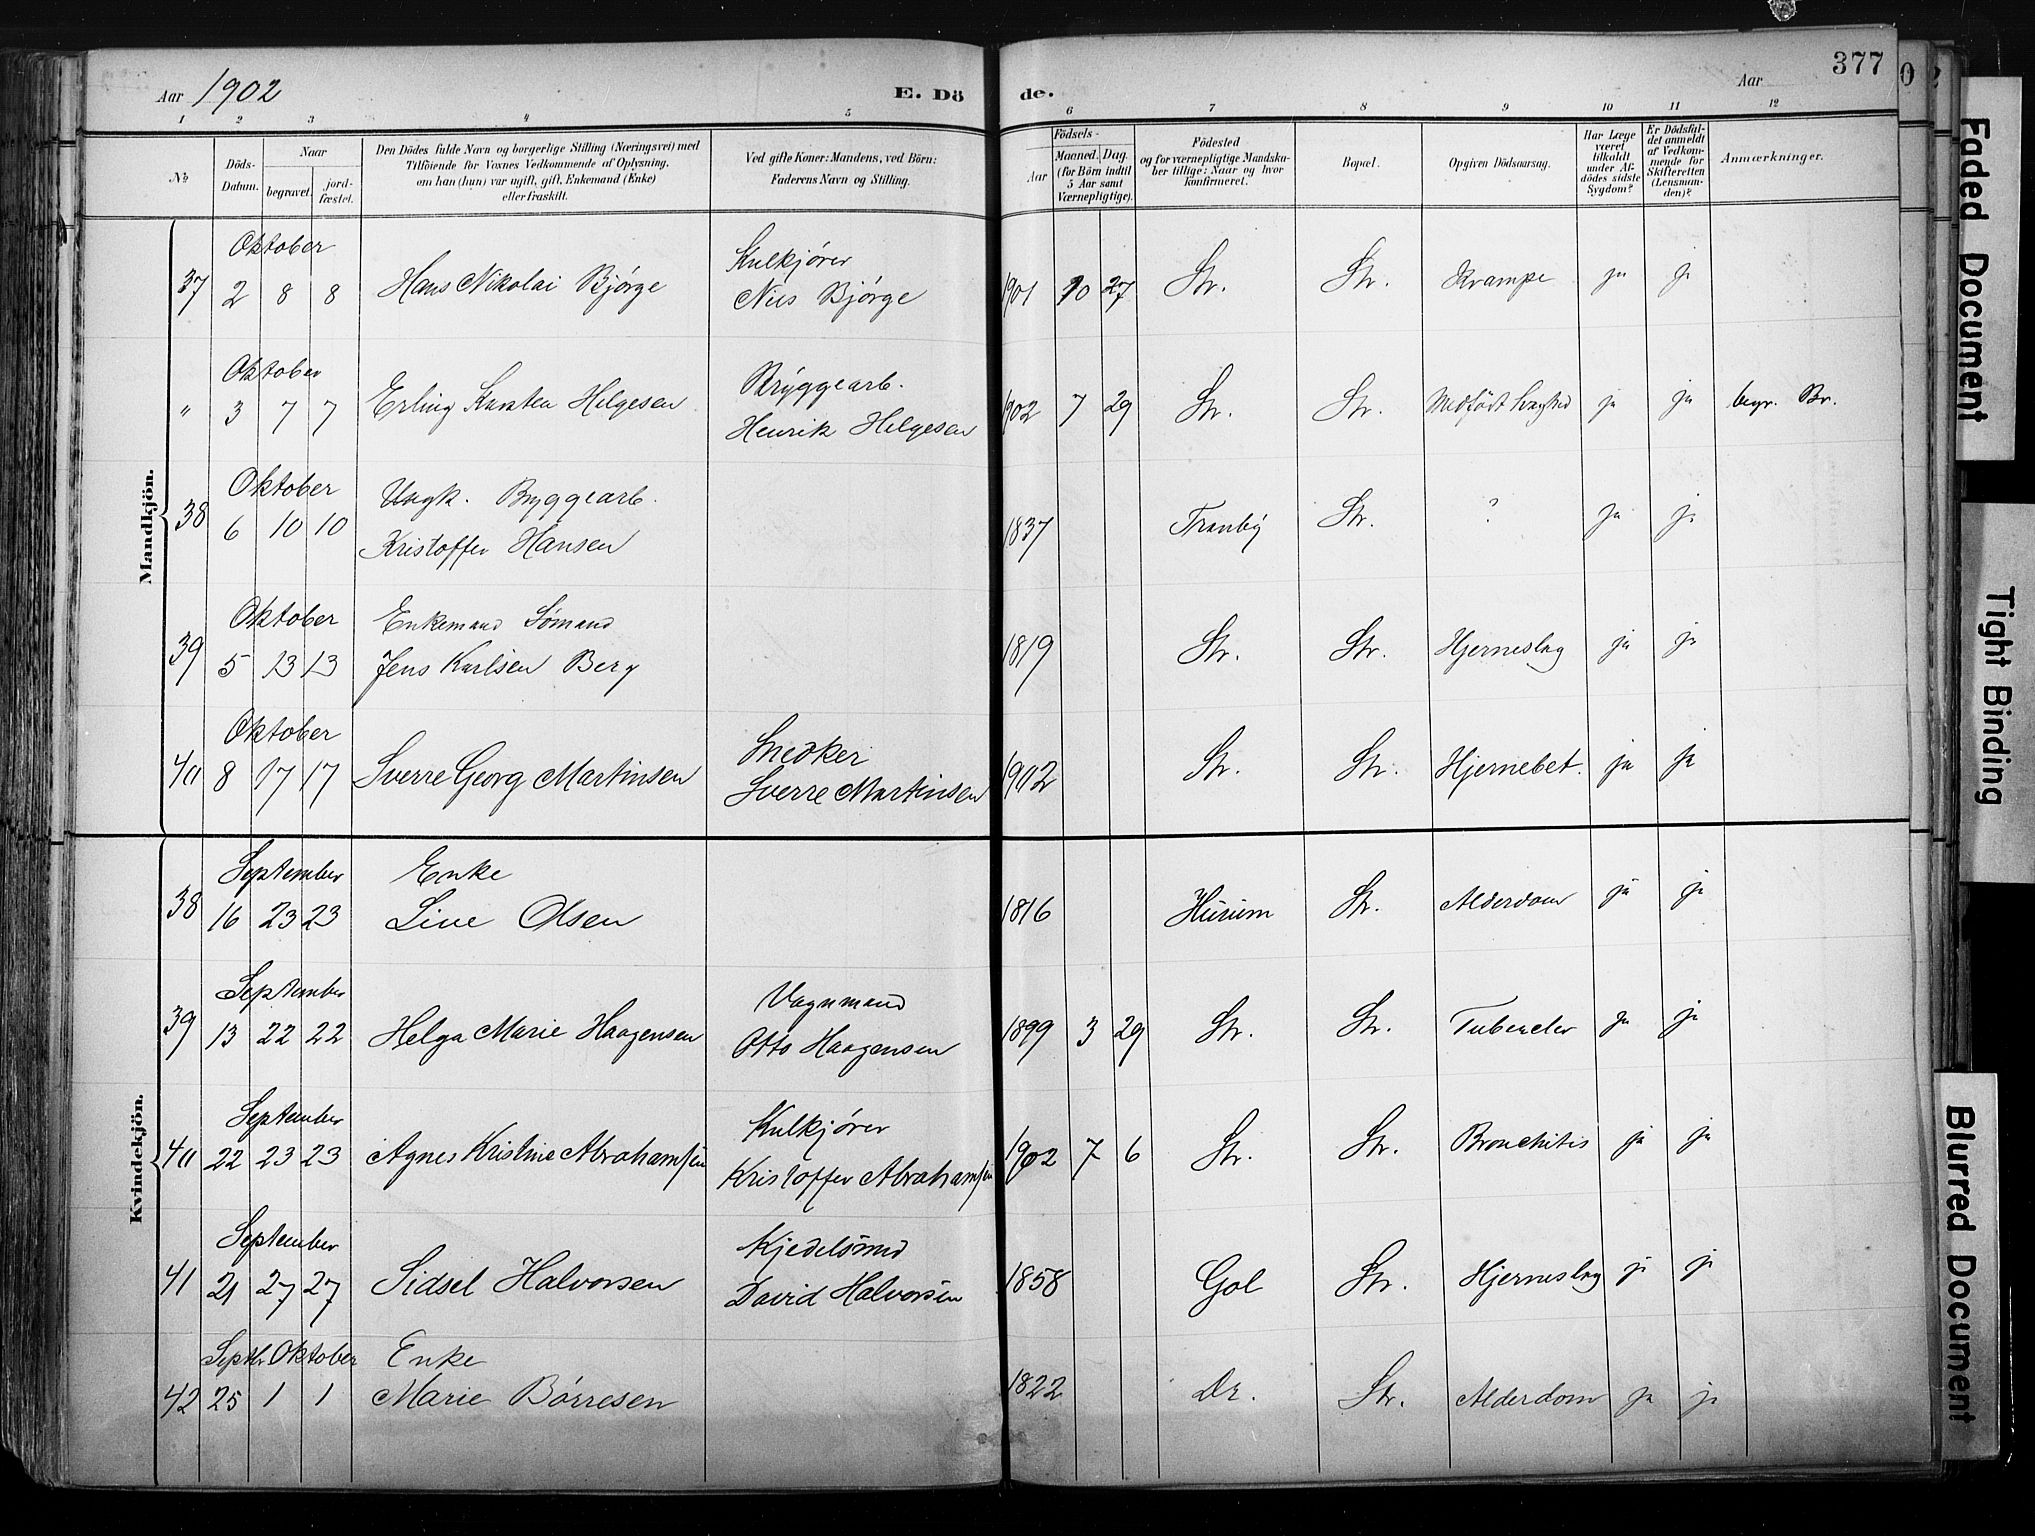 Aar 1902
E. Dö de.
Aar
377
1 2 3 4 5 6 7 8 9 10 11 12
No
Döds-Datum.
Naar
begravet.
jord-fæstet.
Den Dödes fulde Navn og borgerlige Stilling (Næringsvei) med
Tilföiende for Voxnes Vedkommende af Oplysning,
om han (hun) var ugift, gift, Enkemand (Enke)
eller fraskilt.
Ved gifte Koner: Mandens, ved Börn:
Faderens Navn og Stilling.
Födsels-
Aar
Maaned. Dag.
(for Börn indtil
5 Aar samt
Værnepligtige).
Födested
og for værnepligtige Mandska-
ber tillige: Naar og hvor
konfirmeret.
Bopæl.
Opgiven Dödsaarsag.
Har Læge
været
tilkaldt
under Af-
dödes sidste
Sygdom?
Er Dödsfal-
det anmeldt
af Vedkom-
mende for
Skifteretten
(Lensman-
den)?
Anmærkninger.
Mandkjön.
Oktober Kulkjører
37 2 8 8 Hans Nikolai Bjørge Nils Bjørge 1901 10 27 Str. Str. Krampe ja ja
Oktober Bryggearb.
" 3 7 7 Erling Karsten Helgesen Henrik Helgesen 1902 7 29 Str. Str. Medfødt Svaghed ja ja begr. Br.
Oktober Ungk. Bryggearb.
38 6 10 10 Kristoffer Hansen 1837 Tranby Str. ? ja ja
Oktober Enkemand Sømand
39 5 13 13 Jens Karlsen Berg 1819 Str. Str. Hjerneslag ja ja
Oktober Snedker
40 8 17 17 Sverre Georg Martinsen Sverre Martinsen 1902 Str. Str. Hjernebet. ja ja
Kvindekjön.
September Enke
38 16 23 23 Line Olsen 1816 Hurum Str. Alderdom ja ja
September Vognmand
39 13 22 22 Helga Marie Haagensen Otto Haagensen 1899 3 29 Str. Str. Tubercler ja ja
September Kulkjører
40 22 23 23 Agnes Kristine Abrahamsen Kristoffer Abrahamsen 1902 7 6 Str. Str. Bronchitis ja ja
September Kjedelsmed
41 21 27 27 Sidsel Halvorsen David Halvorsen 1858 Gol Str. Hjerneslag ja ja
Septbr Oktober Enke
42 25 1 1 Marie Børresen 1822 Dr. Str. Alderdom ja ja
Faded Document
Tight Binding
Blurred Document